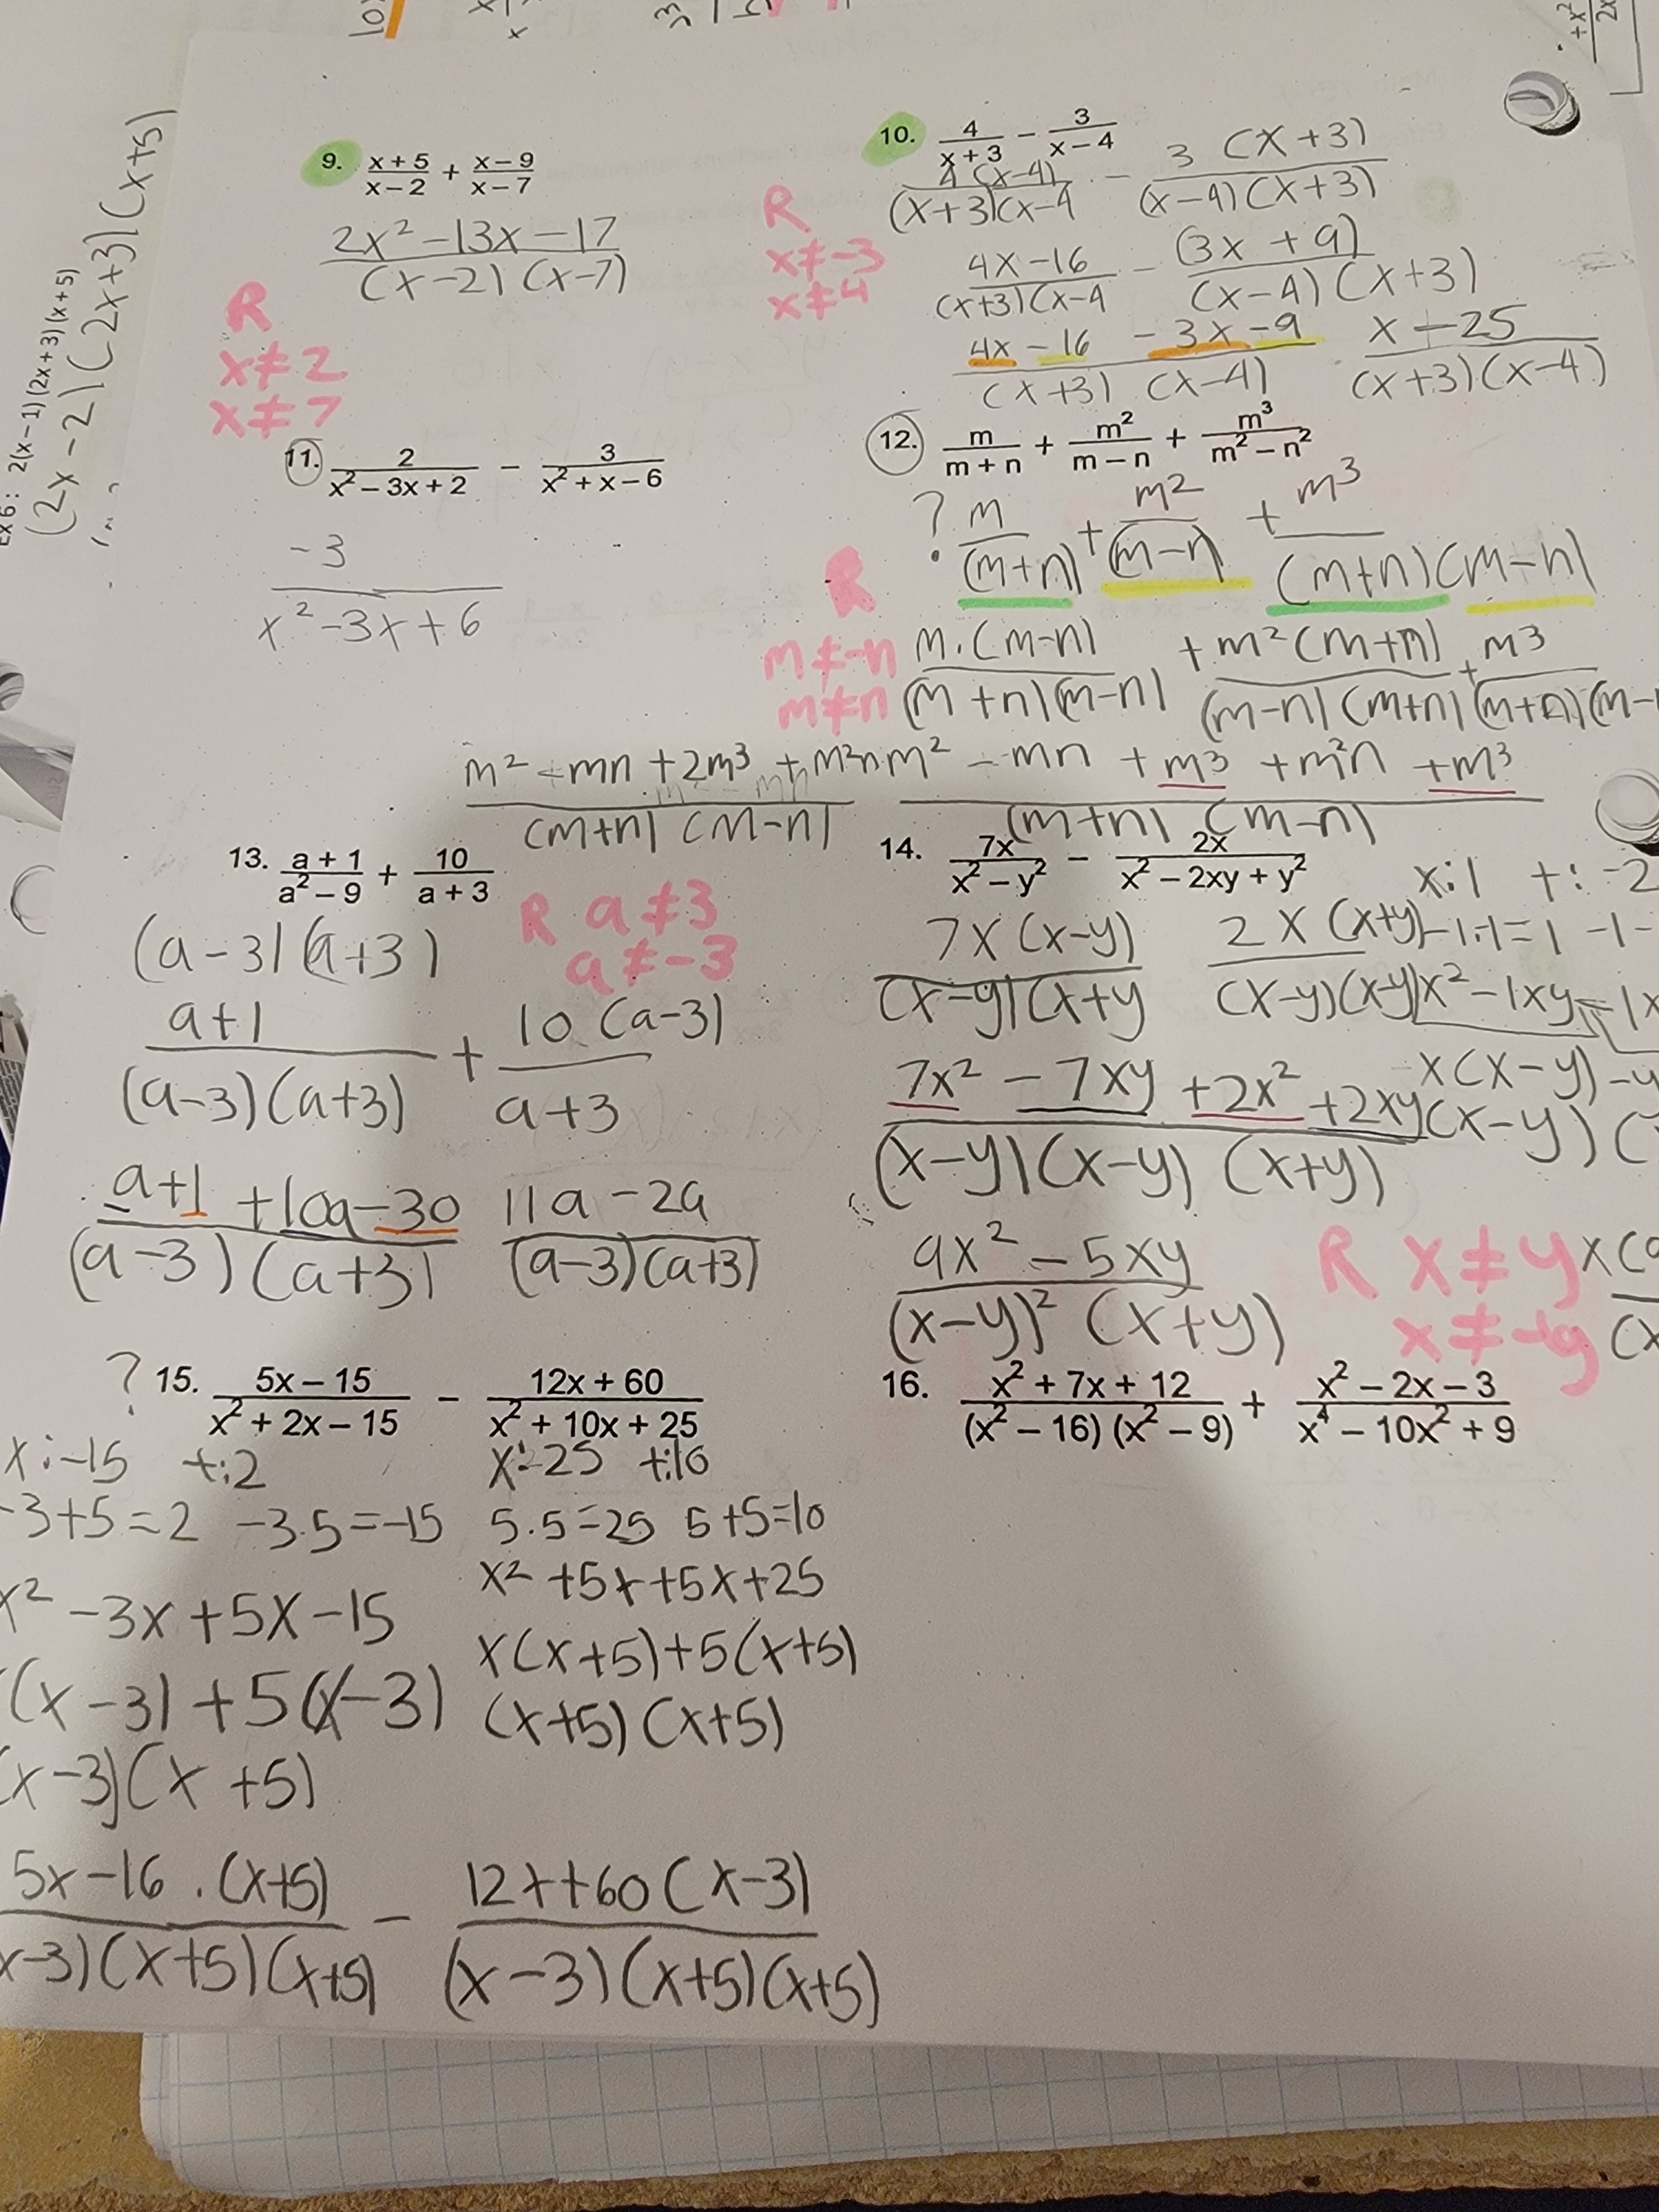 Ex 6: 2(x-1)(2x+3)(x+5)
(2x-2)(2x+3)(x+5)
9. \frac{x+5}{x-2} + \frac{x-9}{x-7}
\frac{2x² -13x -17}{(x-2)(x-7)}
R
x≠2
x≠7
10. \frac{4}{x+3} - \frac{3}{x-4}
\frac{4(x-4)}{(x+3)(x-4} - \frac{3(x+3)}{(x-4)(x+3)}
R
x≠-3
x≠4
\frac{4x-16}{(x+3)(x-4} - \frac{(3x+9)}{(x-4)(x+3)}
\frac{4x-16 -3x-9}{(x+3)(x-4)} \frac{x-25}{(x+3)(x-4)}
11. \frac{2}{x²-3x+2} - \frac{3}{x²+x-6}
\frac{-3}{x²-3x+6}
12. \frac{m}{m+n} + \frac{m²}{m-n} + \frac{m³}{m²-n²}
? \frac{m}{(m+n)} + \frac{m²}{(m-n)} + \frac{m³}{(m+n)(m-n)}
R
m≠-n
m≠n
\frac{m·(m-n)}{(m+n)(m-n)} + \frac{m²(m+n)}{(m-n)(m+n)} + \frac{m³}{(m+n)(m-}
\frac{m²-mn+2m³+m²n}{(m+n)(m-n)} \frac{m²-mn+m³+m²n+m³}{(m+n)(m-n)}
13. \frac{a+1}{a²-9} + \frac{10}{a+3}
(a-3)(a+3)
R a≠3
a≠-3
\frac{a+1}{(a-3)(a+3)} + \frac{10(a-3)}{a+3}
\frac{a+1+10a-30}{(a-3)(a+3)} \frac{11a-29}{(a-3)(a+3)}
14. \frac{7x}{x²-y²} - \frac{2x}{x²-2xy+y²}
x:1 +:-2
-1·-1=1 -1-
\frac{7x(x-y)}{(x-y)(x+y} \frac{2x(x+y)}{(x-y)(x-y)}
x²-1xy-1x
x(x-y)-y
(x-y)(
\frac{7x²-7xy+2x²+2xy}{(x-y)(x-y)(x+y)}
\frac{9x²-5xy}{(x-y)²(x+y)}
R x≠y
x≠-y
? 15. \frac{5x-15}{x²+2x-15} - \frac{12x+60}{x²+10x+25}
x:-15 +:2
-3+5=2 -3·5=-15
x²-3x+5x-15
(x-3)+5(x-3)
(x-3)(x+5)
x:25 +:10
5·5=25 5+5=10
x²+5x+5x+25
x(x+5)+5(x+5)
(x+5)(x+5)
\frac{5x-16·(x+5)}{x-3)(x+5)(x+5)} - \frac{12x+60(x-3)}{(x-3)(x+5)(x+5)}
16. \frac{x²+7x+12}{(x²-16)(x²-9)} + \frac{x²-2x-3}{x⁴-10x²+9}